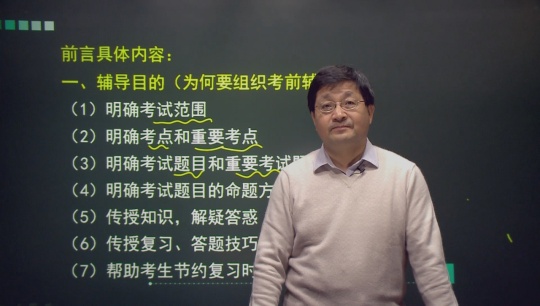 前言具体内容：
一、辅导目的（为何要组织考前辅
（1）明确考试范围
（2）明确考点和重要考点
（3）明确考试题目和重要考试
（4）明确考试题目的命题方
（5）传授知识，解疑答惑
（6）传授复习、答题技巧
（7）帮助考生节约复习时